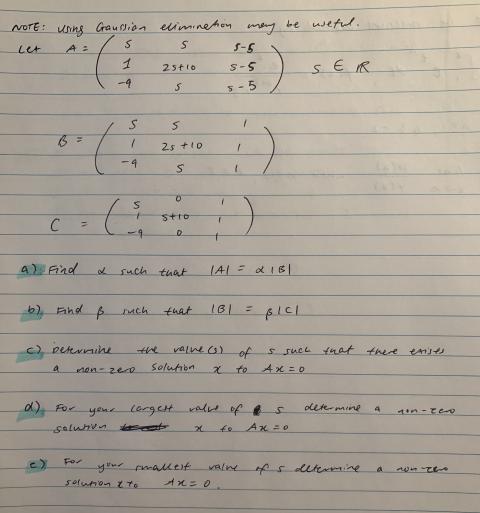 NOTE: Using Gaussian elimination may be useful.
Let A = ( s s s-5
1 2s+10 s-5
-4 s s-5 ) s ∈ ℝ
B = ( s s 1
1 2s+10 1
-4 s 1 )
C = ( s 0 1
1 s+10 1
-4 0 1 )
a) Find α such that |A| = α|B|
b) Find β such that |B| = β|C|
c) Determine the value(s) of s such that there exists
a non-zero solution x to Ax=0
d) For your largest value of s determine a non-zero
solution x to Ax=0
e) For your smallest value of s determine a non-zero
solution x to Ax=0.